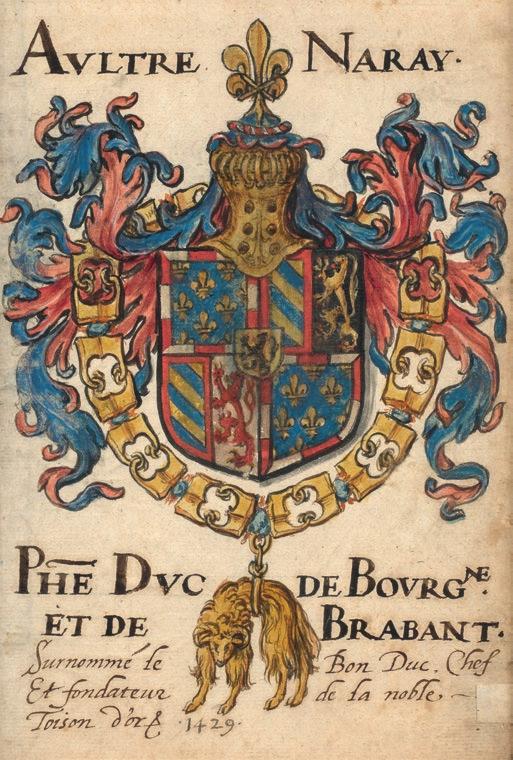 AVLTRE NARAY.
PHE DVC DE BOVRG.NE
ET DE BRABANT.
Surnommé le Bon Duc. Chef
Et fondateur de la noble,
Toison d'or 1429.